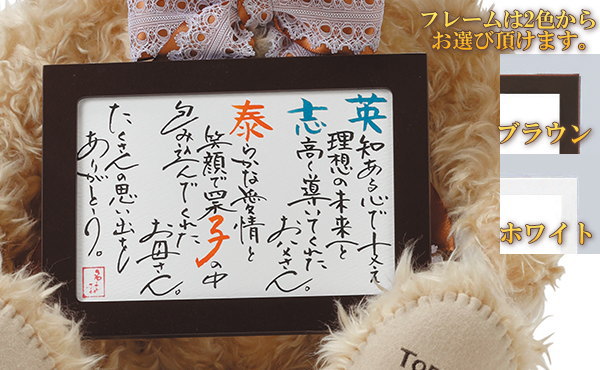 フレームは2色から
お選び頂けます。
ブラウン
ホワイト
英知ある心で支え
理想の未来へと
志高く導いてくれた
お父さん。
泰らかな愛情と
笑顔で 子の中
包み込んでくれた
お母さん。
たくさんの思い出を
ありがとう。